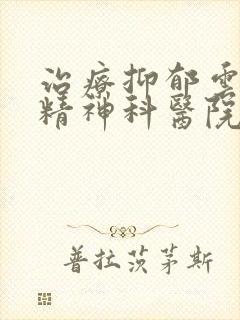 治療抑郁
精神科醫院
普拉茨茅斯